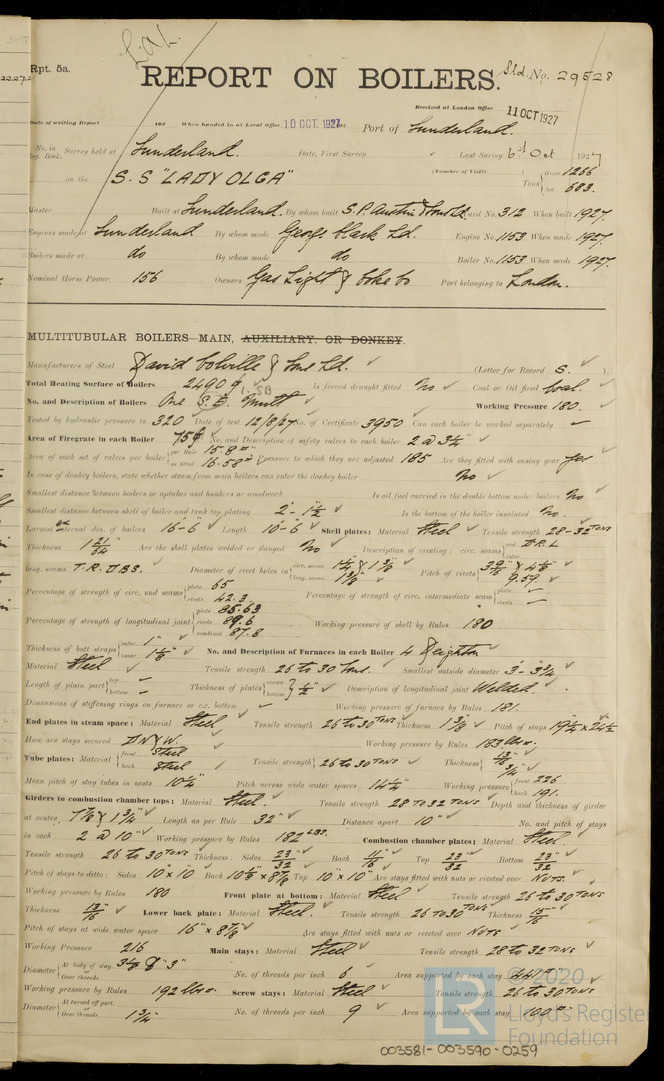 Rpt. 5a.
REPORT ON BOILERS.
Sld. No. 29528
Received at London Office 11 OCT 1927
Date of writing Report 192 When handed in at Local Office 10 OCT. 1927 Port of Sunderland.
No. in Reg. Book. Survey held at Sunderland. Date, First Survey Last Survey 6th Oct 1927
on the S.S "LADY OLGA" (Number of Visits Tons Gross 1266 Net 683.
Master Built at Sunderland. By whom built S.P. Austin & Son Ld. Yard No. 312 When built 1927.
Engines made at Sunderland By whom made George Clark Ld. Engine No. 1153 When made 1927.
Boilers made at do By whom made do Boiler No. 1153 When made 1927.
Nominal Horse Power 156 Owners Gas Light & Coke Co Port belonging to London.
MULTITUBULAR BOILERS—MAIN, AUXILIARY, OR DONKEY.
Manufacturers of Steel David Colville & Sons Ld. (Letter for Record S. )
Total Heating Surface of Boilers 2490 Is forced draught fitted No Coal or Oil fired Coal.
No. and Description of Boilers One S.E. Mult 1.SB Working Pressure 180.
Tested by hydraulic pressure to 320 Date of test 12/8/27 No. of Certificate 3950 Can each boiler be worked separately —
Area of Firegrate in each Boiler 75 No. and Description of safety valves to each boiler 2 @ 3½"
Area of each set of valves per boiler per Rule 15.8 as fitted 16.58 Pressure to which they are adjusted 185 Are they fitted with easing gear yes
In case of donkey boilers, state whether steam from main boilers can enter the donkey boiler No
Smallest distance between boilers or uptakes and bunkers or woodwork Is oil fuel carried in the double bottom under boilers No
Smallest distance between shell of boiler and tank top plating 2'-1½" Is the bottom of the boiler insulated No.
Largest internal dia. of boilers 16'-6" Length 10'-6" Shell plates: Material Steel Tensile strength 28-32 TONS
Thickness 1 21/64 Are the shell plates welded or flanged No Description of riveting: circ. seams end D.R.L
long. seams T.R.D.BS. Diameter of rivet holes in circ. seams 1¼ & 1⅜ long. seams 1⅜" Pitch of rivets 9.59.
Percentage of strength of circ. end seams plate 65 rivets 42.3. Percentage of strength of circ. intermediate seam plate — rivets —
Percentage of strength of longitudinal joint plate 85.63 rivets 89.6 combined 87.8 Working pressure of shell by Rules 180
Thickness of butt straps outer 1" inner 1⅛" No. and Description of Furnaces in each Boiler 4 Deighton
Material Steel Tensile strength 26 to 30 tons. Smallest outside diameter 3'-3¾"
Length of plain part top — bottom — Thickness of plates crown bottom ½" Description of longitudinal joint Welded.
Dimensions of stiffening rings on furnace or c.c. bottom — Working pressure of furnace by Rules 181.
End plates in steam space: Material Steel Tensile strength 26 to 30 TONS Thickness 1⅜" Pitch of stays 19½ x 21½
How are stays secured D N & W. Working pressure by Rules 183 lbs.
Tube plates: Material front Steel back Steel Tensile strength 26 to 30 TONS Thickness 13/16 ¾"
Mean pitch of stay tubes in nests 10½" Pitch across wide water spaces 14½" Working pressure front 226 back 191.
Girders to combustion chamber tops: Material Steel. Tensile strength 28 TO 32 TONS Depth and thickness of girder
at centre, 7⅞ & 1¾" Length as per Rule 32" Distance apart 10" No. and pitch of stays
in each 2 @ 10" Working pressure by Rules 182 LBS. Combustion chamber plates: Material Steel.
Tensile strength 26 to 30 TONS Thickness: Sides 23/32 Back 11/16 Top 23/32 Bottom 23/32
Pitch of stays to ditto: Sides 10 x 10 Back 10⅝ x 8⅞ Top 10" x 10" Are stays fitted with nuts or riveted over NUTS.
Working pressure by Rules 180 Front plate at bottom: Material Steel Tensile strength 26 to 30 TONS
Thickness 13/16 Lower back plate: Material Steel. Tensile strength 26 TO 30 TONS Thickness 15/16
Pitch of stays at wide water space 16" x 8⅞ Are stays fitted with nuts or riveted over NUTS
Working Pressure 216 Main stays: Material Steel Tensile strength 28 to 32 TONS
Diameter At body of stay, or Over threads. 3⅛ & 3" No. of threads per inch 6 Area supported by each stay
Working pressure by Rules 192 lbs. Screw stays: Material Steel Tensile strength 26 to 30 TONS
Diameter At turned off part, or Over threads. 1¾" No. of threads per inch 9 Area supported by each stay 100
© 2020
LR
Lloyd's Register
Foundation
003581-003590-0259